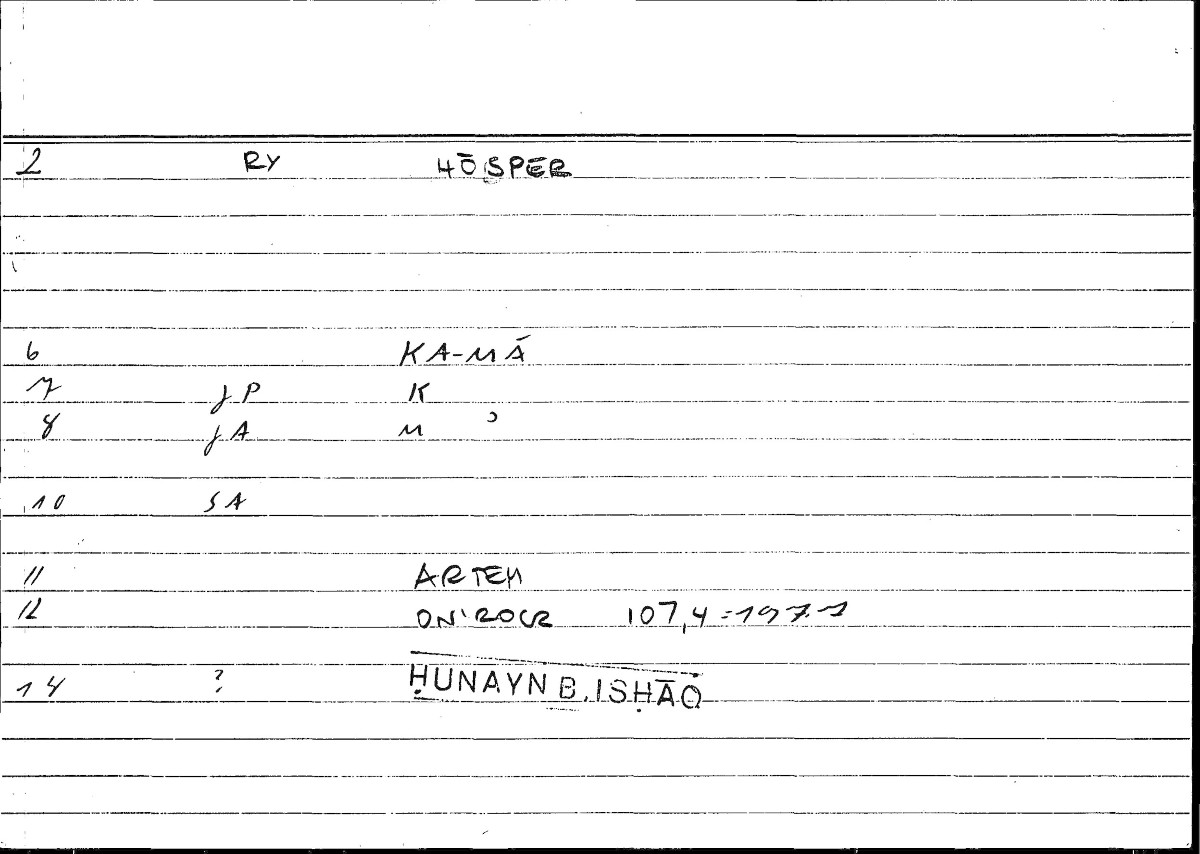 2 RY HŌSPĒR
6 KA-MÀ
7 JP K
8 JA M ʾ
10 SA
11 ARTEM
12 ONIROCR 107,4 = 197.1
14 ? ḤUNAYN B. ISḤĀQ